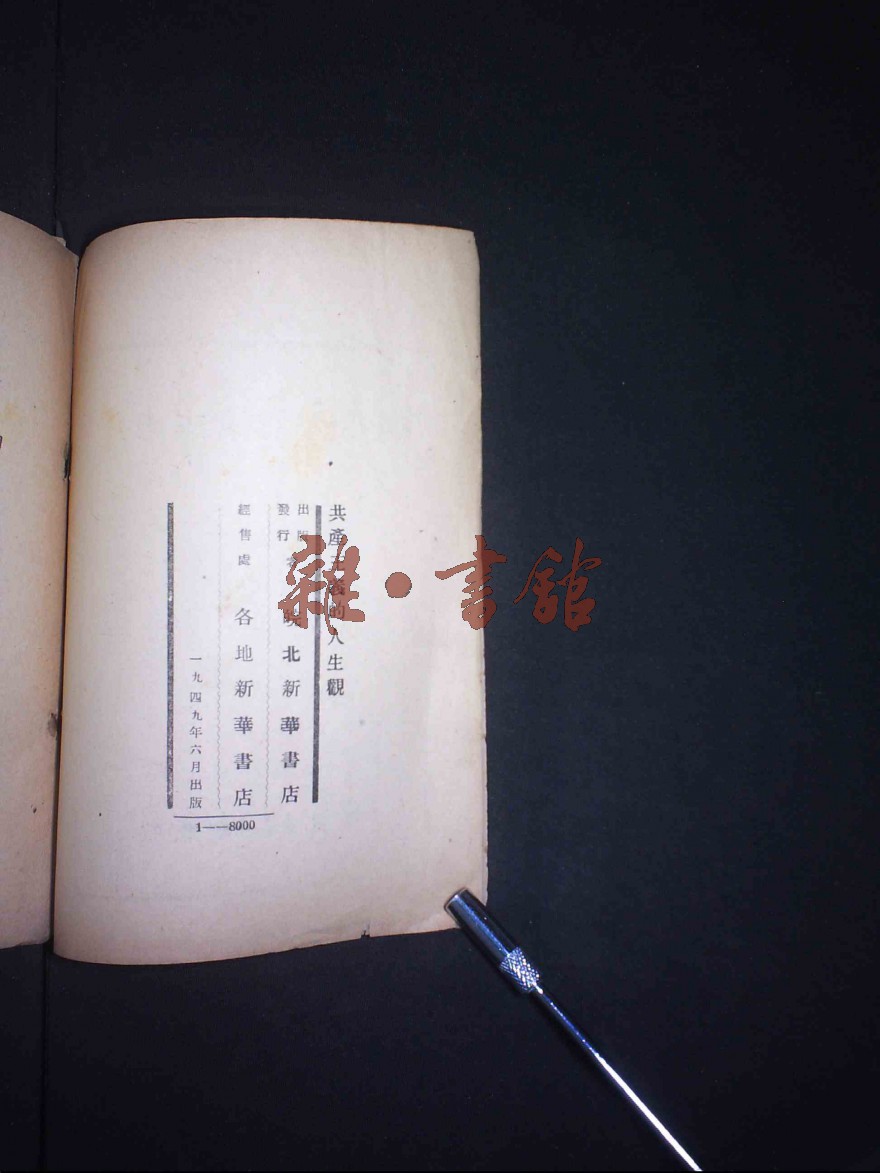 共產主義的人生觀
出版
發行
北新華書店
經售處 各地新華書店
一九四九年六月出版
1——8000
雜·書館